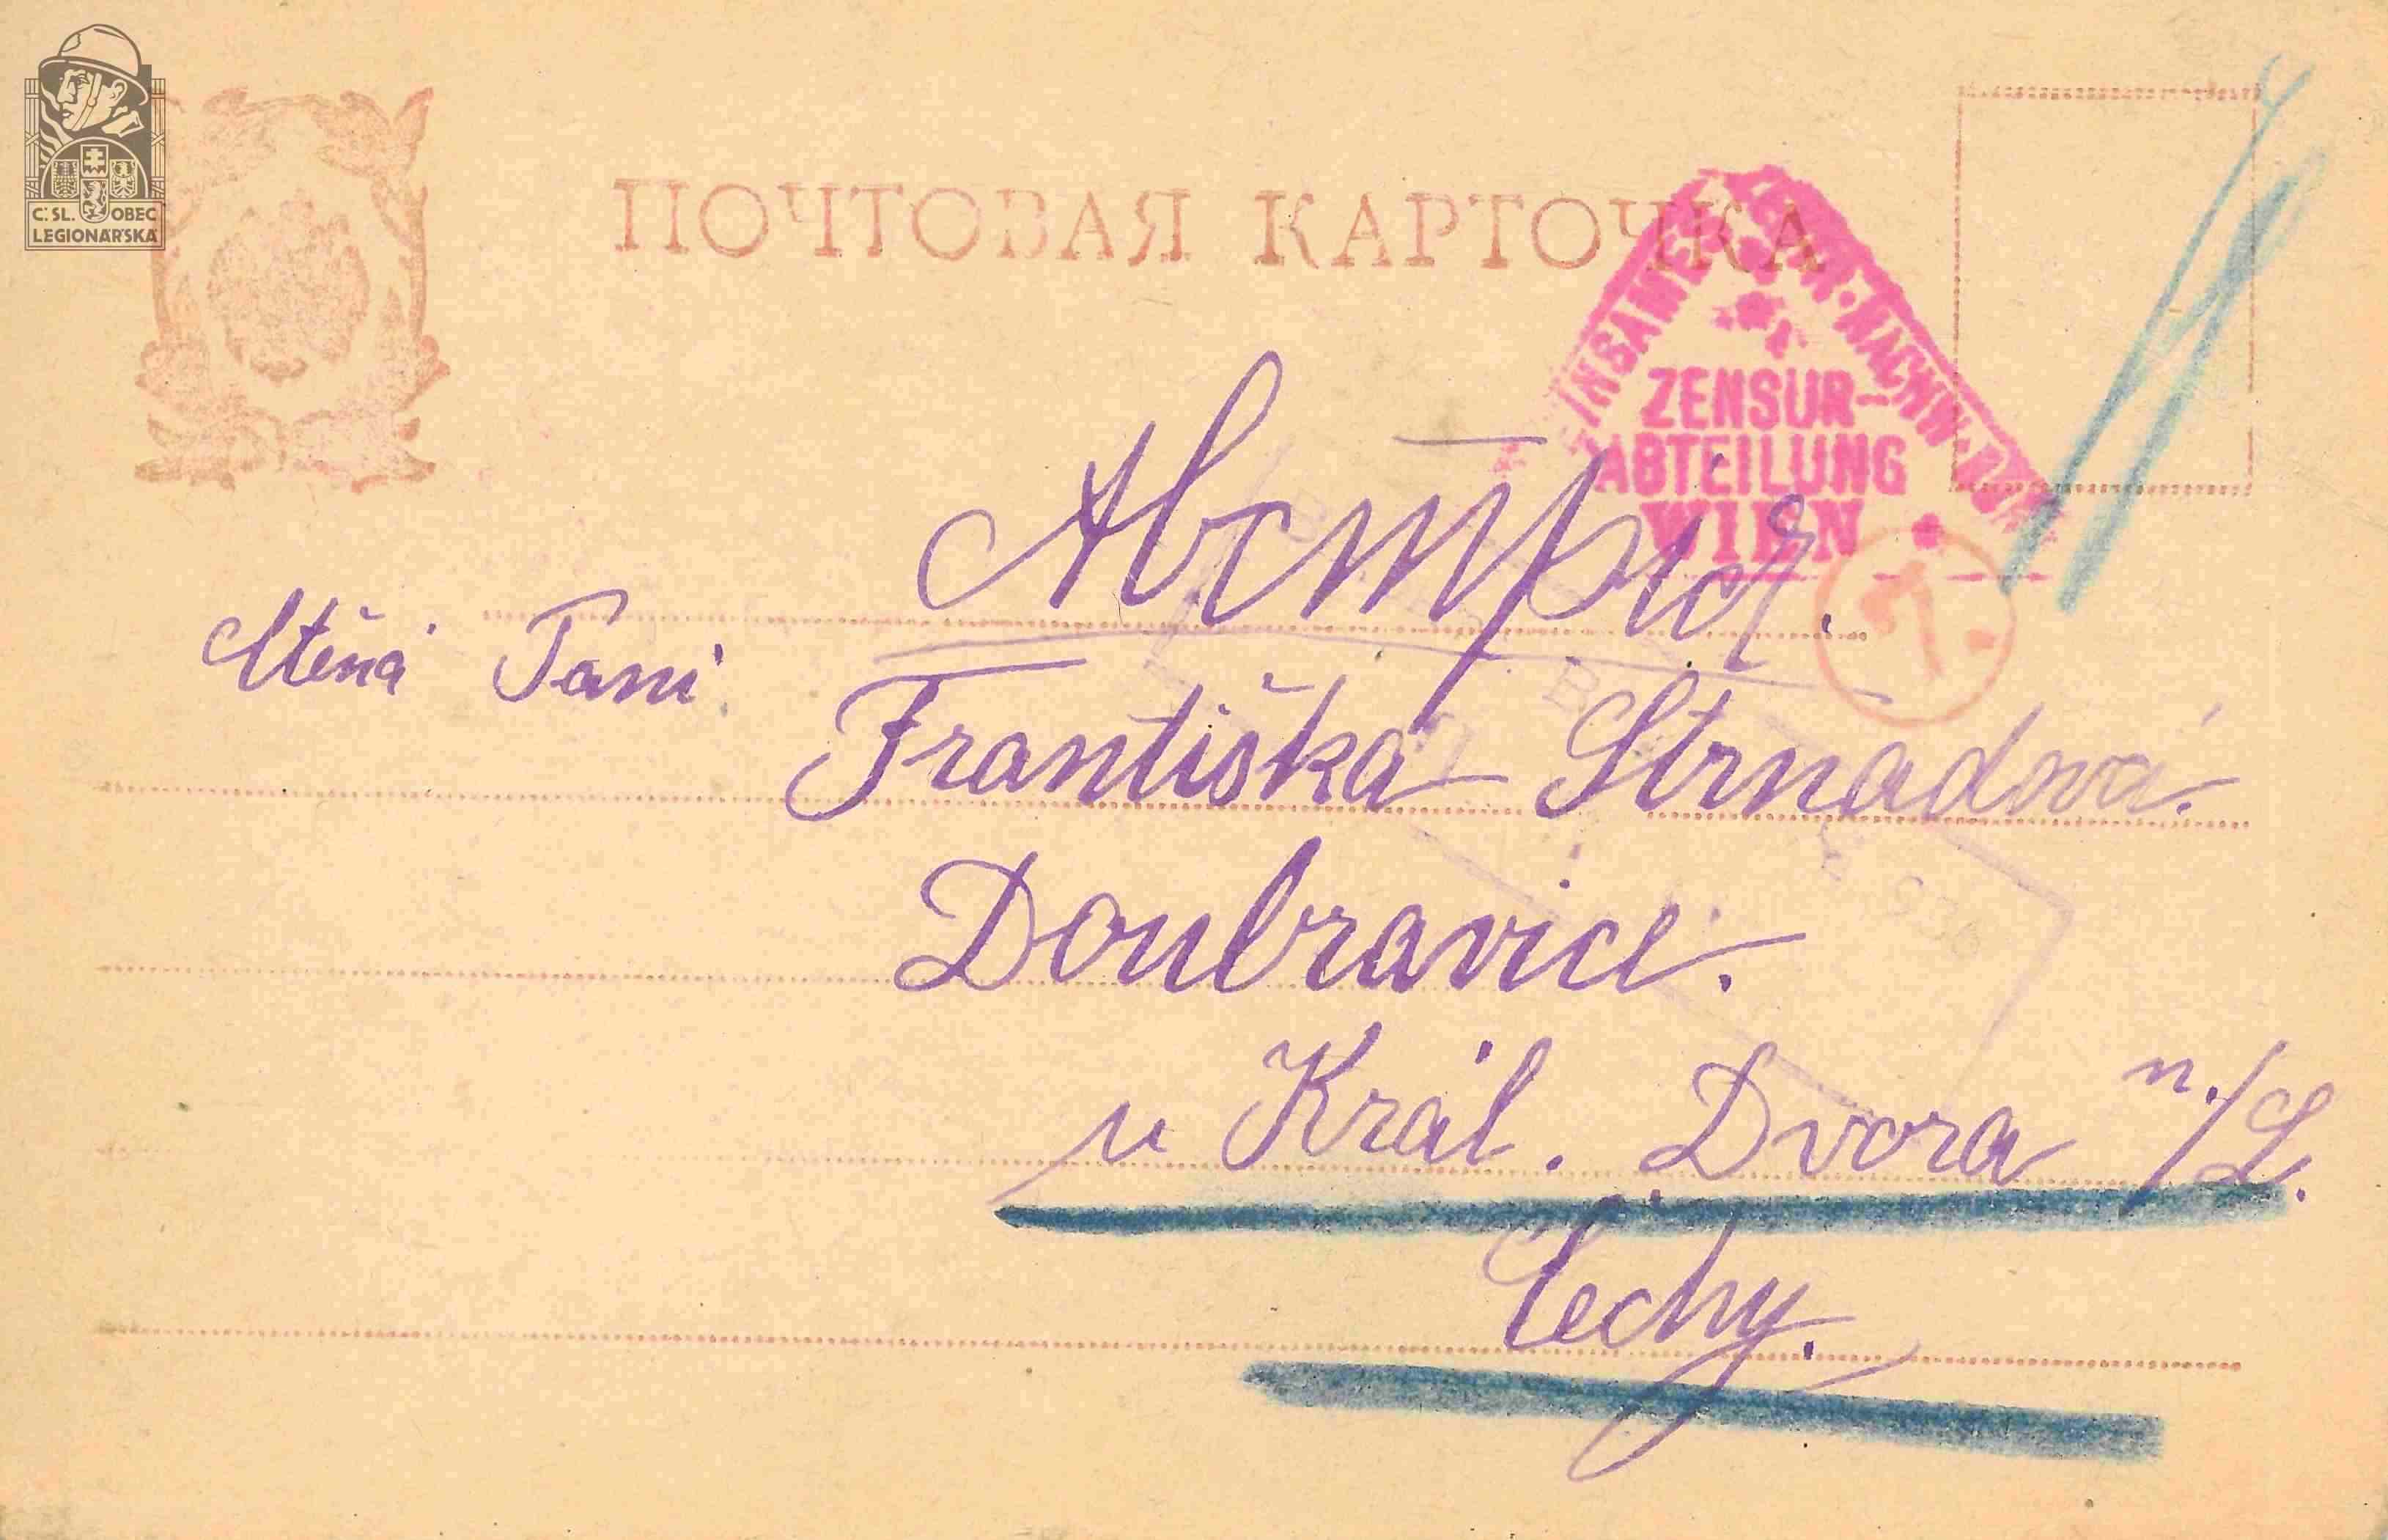 Č.SL. OBEC
LEGIONÁŘSKÁ
ПОЧТОВАЯ КАРТОЧКА
ZENSUR-
ABTEILUNG
WIEN
Ctěná Paní
Františka Strnadová.
Doubravice.
u Král. Dvora n./L.
Čechy.